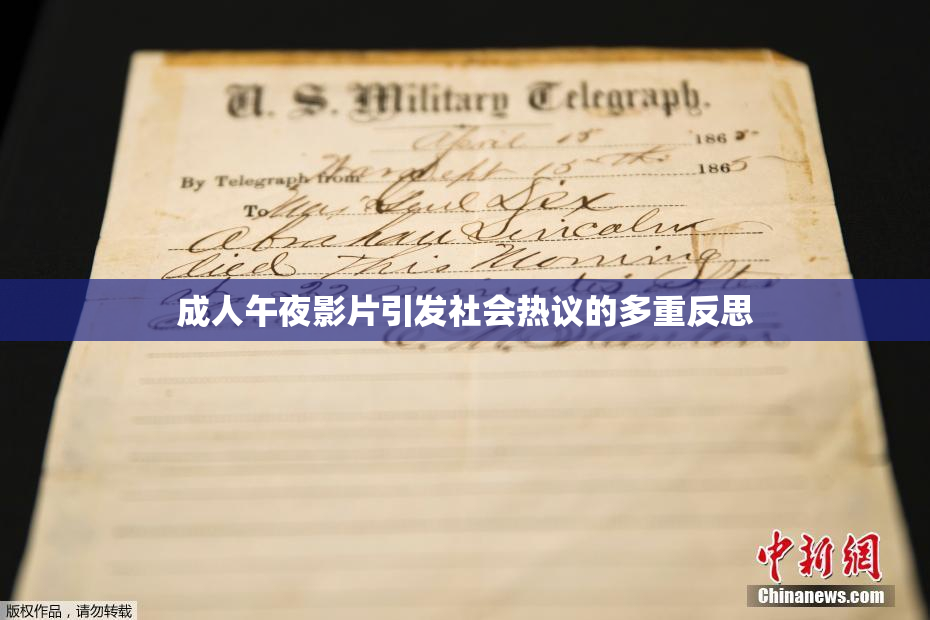 U. S. Military Telegraph.
April 15 1865
By Telegraph from War Dept 15th 1865
To Maj Genl Dix
Abraham Lincoln
died This Morning
at 22 minutes After
成人午夜影片引发社会热议的多重反思
E. M. Stanton
中新網
Chinanews.com
版权作品，请勿转载